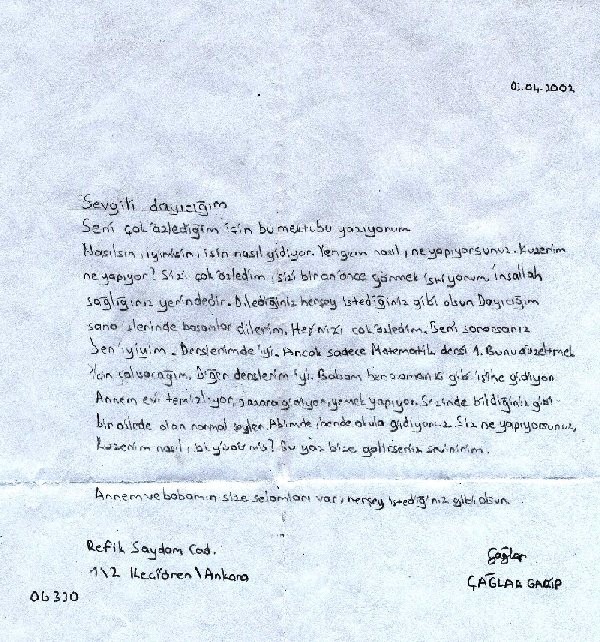 01.04.2002
Sevgili dayıcığım
Seni çok özlediğim için bu mektubu yazıyorum
Nasılsın, iyimisin, işin nasıl gidiyor. Yengem nasıl, ne yapıyorsunuz. Kuzenim
ne yapıyor? Sizi çok özledim, sizi bir an önce görmek istiyorum, inşallah
sağlığınız yerindedir. Dilediğiniz herşey istediğiniz gibi olsun Dayıcığım
sana işlerinde başarılar dilerim. Hepinizi çok özledim. Beni sorarsanız
ben iyiyim. Derslerimde iyi. Ancak sadece Matematik dersi 1. Bunu düzeltmek
için çalışacağım. Diğer derslerim iyi. Babam her zamanki gibi işine gidiyor.
Annem evi temizliyor, pazara gidiyor, yemek yapıyor. Sizinde bildiğiniz gibi
bir ailede olan normal şeyler. Abimde, bende okula gidiyoruz. Siz ne yapıyorsunuz,
kuzenim nasıl, büyüdü mü? Bu yaz bize gelirseniz sevinirim.
Annem ve babamın size selamları var, herşey istediğiniz gibi olsun.
Refik Saydam Cad.
1\2 Keçiören \ Ankara
06300
Çağlar
ÇAĞLAR